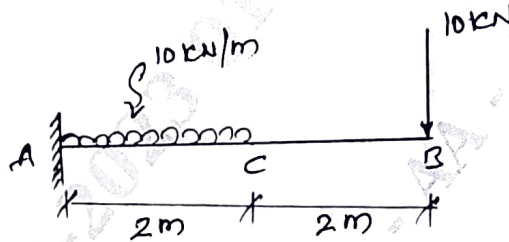 10 KN/m
10 KN
A
C
B
2m
2m